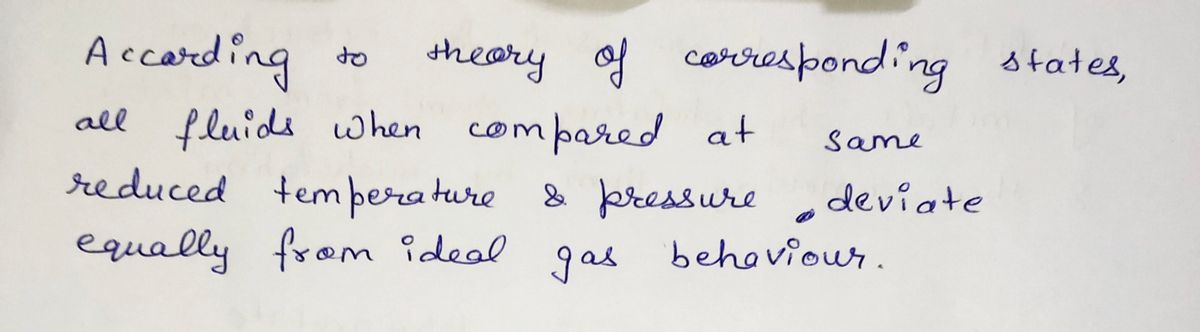 According to theory of corresponding states,
all fluids when compared at same
reduced temperature & pressure, deviate
equally from ideal gas behaviour.